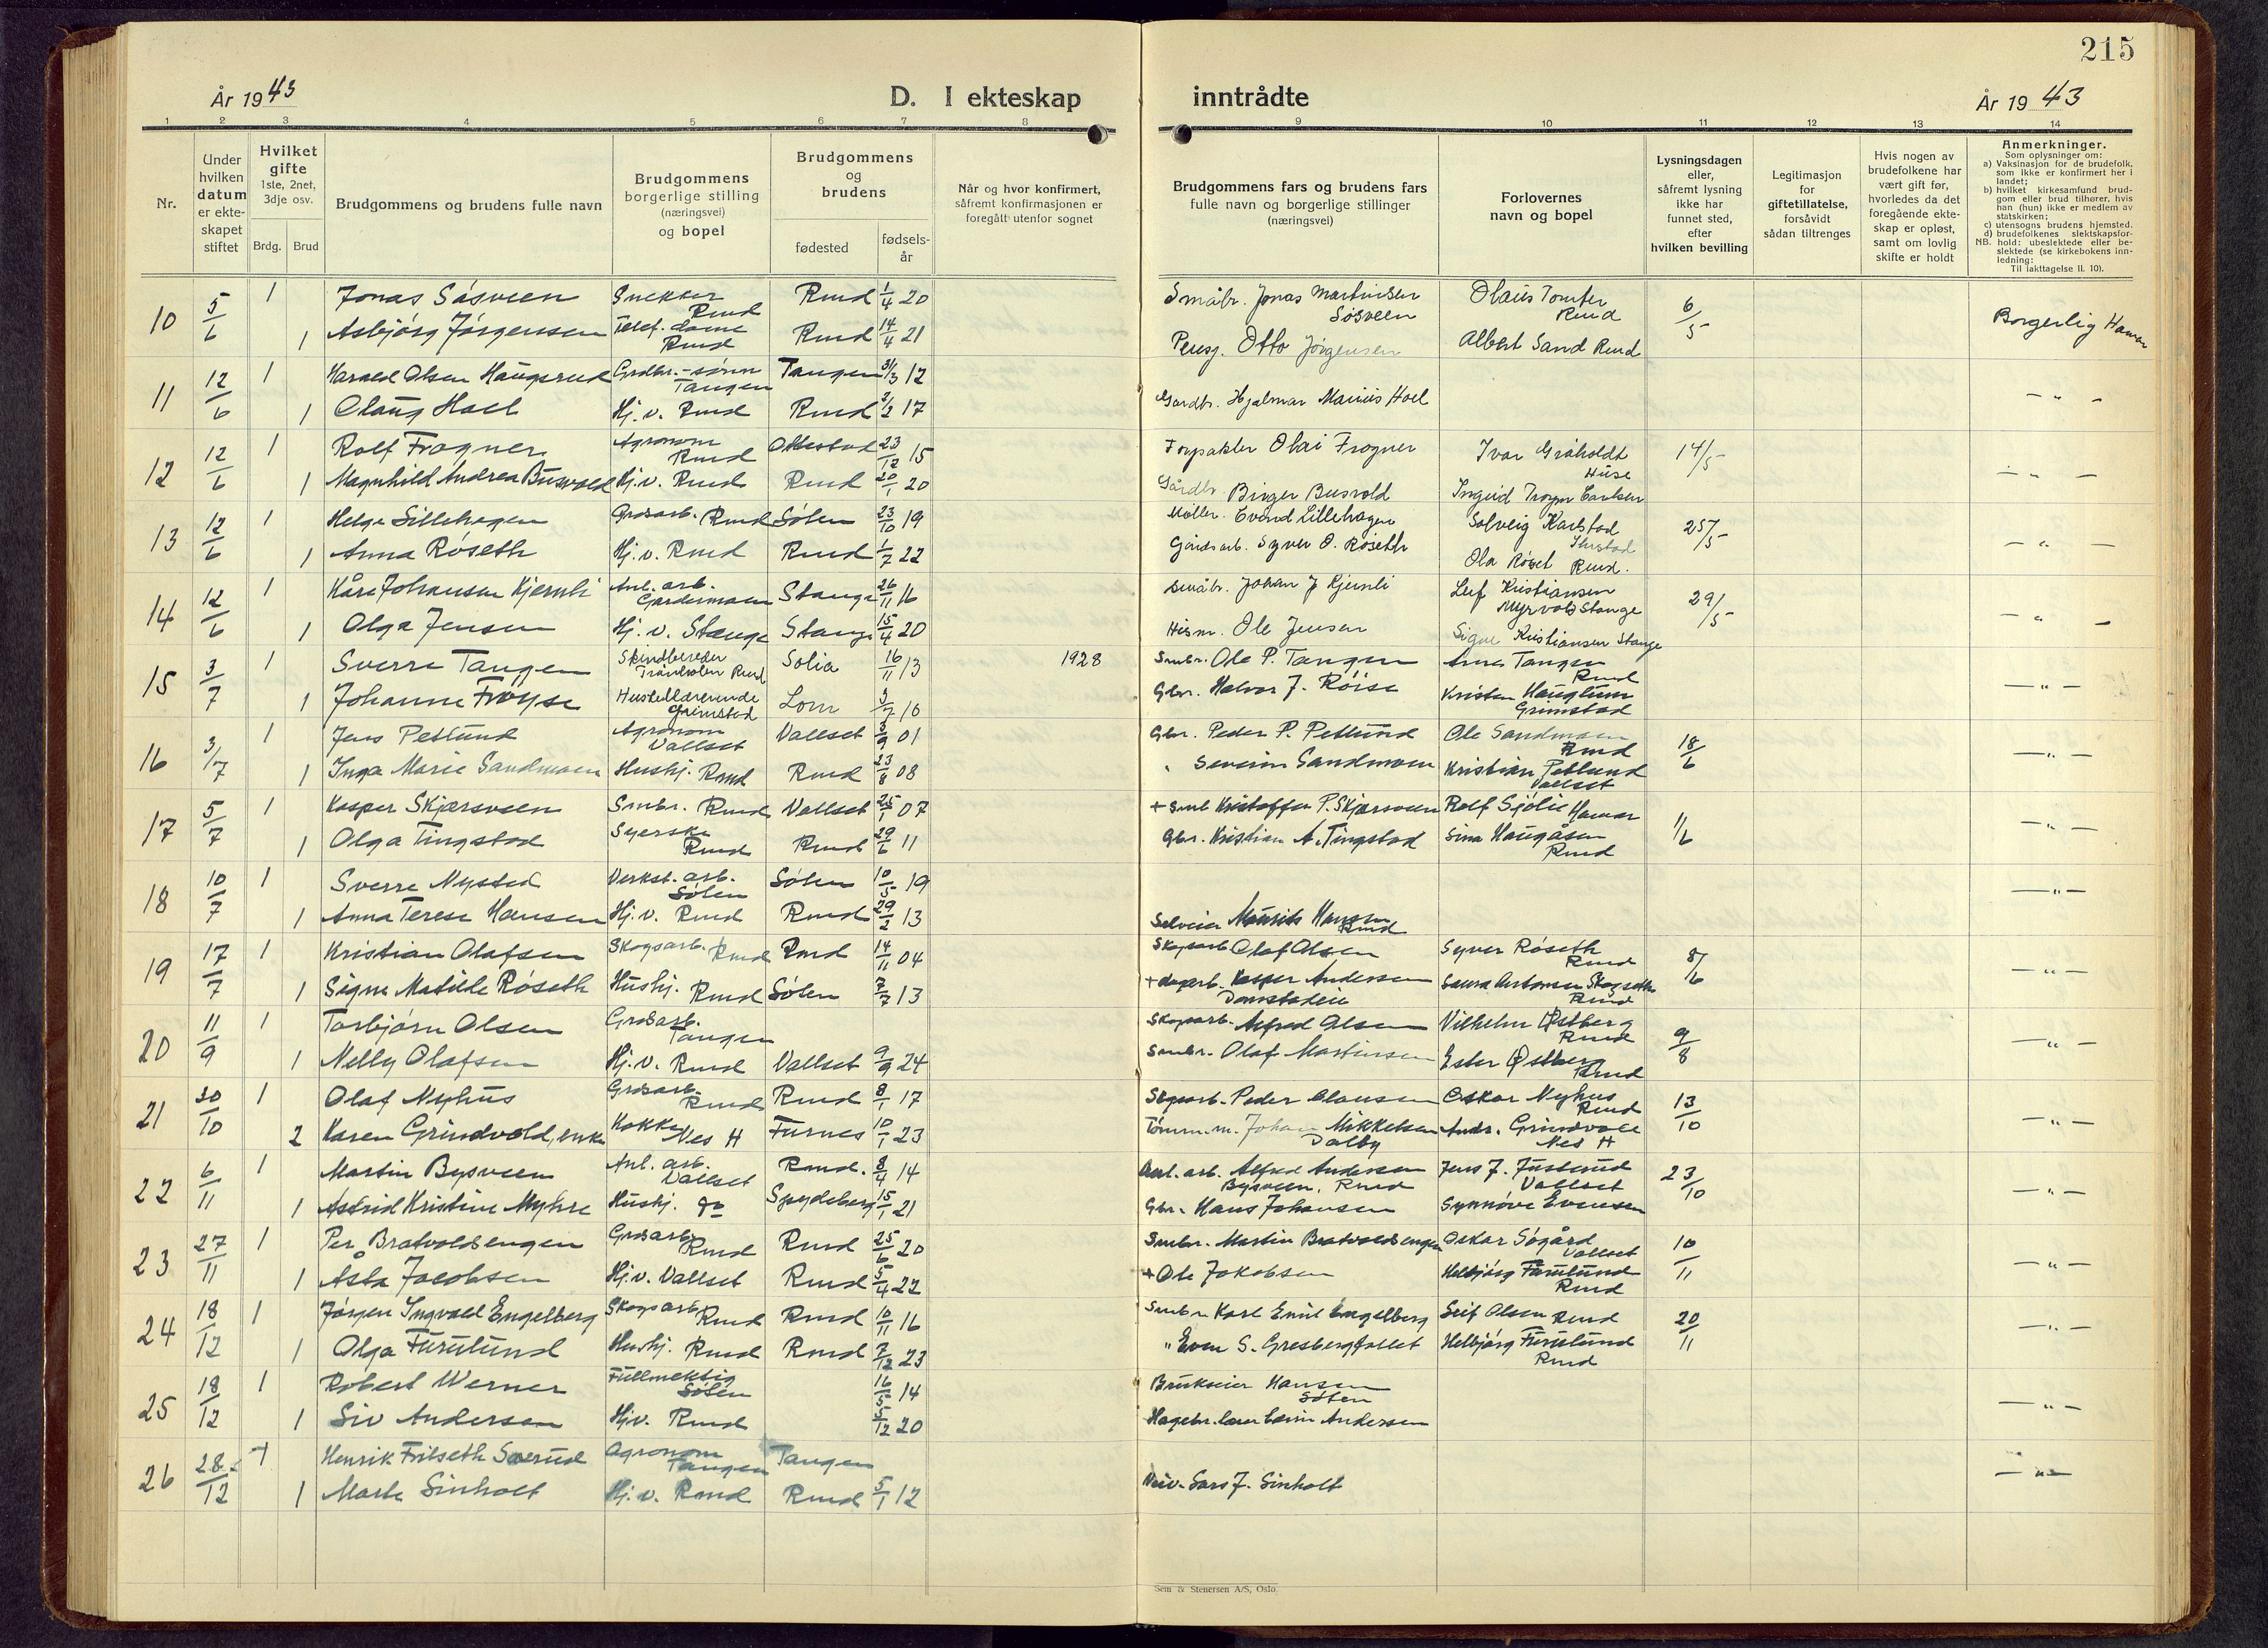 215
År 1943
D. I ekteskap
inntrådte
År 1943
1 2 3 4 5 6 7 8 9 10 11 12 13 14
Nr.
Under
hvilken
datum
er ekte-
skapet
stiftet
Hvilket
gifte
1ste, 2net,
3dje osv.
Brdg. Brud
Brudgommens og brudens fulle navn
Brudgommens
borgerlige stilling
(næringsvei)
og bopel
Brudgommens
og
brudens
fødested
fødsels-
år
Når og hvor konfirmert,
såfremt konfirmasjonen er
foregått utenfor sognet
Brudgommens fars og brudens fars
fulle navn og borgerlige stillinger
(næringsvei)
Forlovernes
navn og bopel
Lysningsdagen
eller,
såfremt lysning
ikke har
funnet sted,
efter
hvilken bevilling
Legitimasjon
for
giftetillatelse,
forsåvidt
sådan tiltrenges
Hvis nogen av
brudefolkene har
vært gift før,
hvorledes da det
foregående ekte-
skap er opløst,
samt om lovlig
skifte er holdt
Anmerkninger.
Som oplysninger om:
a) Vaksinasjon for de brudefolk,
som ikke er konfirmert her i
landet;
b) hvilket kirkesamfund brud-
gom eller brud tilhører, hvis
han (hun) ikke er medlem av
statskirken;
c) utensogns brudens hjemsted.
d) brudefolkenes slektskapsfor-
NB. hold: ubeslektede eller be-
slektede (se kirkebokens inn-
ledning:
Til iakttagelse II. 10).
10 5/6 1 Jonas Søsveen Snekker Rmd Rmd 1/4 20 Småbr. Jonas Martinsen Søsveen Olaus Tomter Rmd 6/5 Borgerlig Hamar
1 Asbjørg Jørgensen Telef. dame Rmd Rmd 14/4 21 Pensj. Otto Jørgensen Albert Sand Rmd
11 12/6 1 Harald Olsen Haugsrud Grdbr.-sønn Tangen Tangen 31/3 12
1 Olaug Hoel Hj.v. Rmd Rmd 2/2 17 Gårdbr. Hjalmar Marius Hoel - " -
12 12/6 1 Rolf Frogner Agronom Rmd Ottestad 23/12 15 Forpakter Olai Frogner Ivar Gråholdt Huse 14/5
1 Magnhild Andrea Busvold Hj.v. Rmd Rmd 20/1 20 Gårdbr Birger Busvold Ingrid Carlsen - " -
13 12/6 1 Helge Lillehagen Grdsarb. Rmd Sølen 23/10 19 Møller. Evend Lillehagen Solveig Karlstad 25/5
1 Anna Røseth Hj.v. Rmd Rmd 1/7 22 Gårdsarb. Syver O. Røseth Ola Røset Rmd. - " -
14 12/6 1 Kåre Johansen Kjernli Anl. arb. Gardermoen Stange 26/11 16 Småbr. Johan J Kjernli Leif Kristiansen Myrvold Stange 29/5
1 Olga Jensen Hj.v. Stange Stange 15/4 20 Husm. Ole Jensen Signe Kristiansen Stange - " -
15 3/7 1 Sverre Tangen Skindbereder Rmd Solia 16/11 13 1928 Smbr. Ole P. Tangen Anna Tangen Rmd
1 Johanne Frøyse Husstellærerinde Grimstad Lom Gbr. Halvor J. Røise Kristen Hauglum Grimstad - " -
16 3/7 1 Jens Petlund Agronom Vallset Vallset 3/9 01 Gbr. Peder P. Petlund Ole Sandmoen Rmd 18/6
1 Inga Marie Sandmoen Hushj. Rmd Rmd 23/6 08 " Severin Sandmoen Kristian Petlund Vallset - " -
17 5/7 1 Kasper Skjærsveen Smbr. Rmd Vallset 25/1 07 + Smb Kristoffer P. Skjærsveen Rolf Sjølie Hamar 1/6
1 Olga Tingstad Syerske Rmd Rmd 29/6 11 Gbr. Kristian A. Tingstad Sina Haugåsen Rmd - " -
18 10/7 1 Sverre Nysted Verkst. arb. Sølen Sølen 10/5 19
1 Anna Terese Hansen Hj.v. Rmd Rmd 29/2 13 Selveier Maurits Hansen Rmd - " -
19 17/7 1 Kristian Olafsen Skogsarb. Rmd Rmd 14/11 04 Skogsarb Olaf Olsen Syver Røseth Rmd 8/6
1 Signe Matilde Røseth Hushj. Rmd Sølen 7/7 13 + dagarb. Kasper Andersen Rmd - " -
20 11/9 1 Torbjørn Olsen Grdsarb. Tangen Skogsarb. Alfred Olsen Vilhelm Østberg Rmd 9/8
1 Nelly Olafsen Hj.v. Rmd Vallset 9/9 24 Smbr. Olaf Martinsen Ester Østberg Rmd - " -
21 30/10 1 Olaf Nyhus Grdsarb. Rmd Rmd 8/1 17 Skogsarb. Peder Clausen Oskar Nyhus Rmd 13/10
2 Karen Grindvold, enke Kokke Nes H Furnes 10/1 23 Tømm.m. Johan Mikkelsen Dalby Andr. Grindvoll Nes H - " -
22 6/11 1 Martin Bysveen Anl. arb. Vallset Rmd. 8/4 14 Anl. arb. Alfred Andersen Bysveen, Rmd Jens J. Justerud Vallset 23/10
1 Astrid Kristine Myhre Hushj. do Spydeberg 15/1 21 Gbr. Hans Johansen Synnøve Evensen - " -
23 27/11 1 Per Bratvoldsengen Grdsarb. Rmd Rmd 25/6 20 Smbr. Martin Bratvoldsengen Oskar Søgård Vallset 10/11
1 Åsta Jacobsen Hj.v. Vallset Rmd 5/4 22 + Ole Jakobsen Helbjørg Furulund Rmd - " -
24 18/12 1 Jørgen Ingvald Engelberg Skogsarb. Rmd Rmd 10/11 16 Smbr. Karl Emil Engelberg Leif Olsen Rmd 20/11
1 Olga Furulund Hushj. Rmd Rmd 7/12 23 " Even S. Gresbergfallet Helbjørg Furulund Rmd - " -
25 18/12 1 Robert Werner Fullmektig Sølen 16/5 14 Brukseier Hansen Sølen
1 Siv Andersen Hj.v. Rmd 5/12 20 Hagebr. lærer Andersen - " -
26 28/12 1 Henrik Frilseth Sverud Agronom Tangen Tangen
1 Marte Sinholt Hj.v. Rmd Rmd 5/1 12 Lars J. Sinholt - " -
Sem & Stenersen A/S, Oslo.